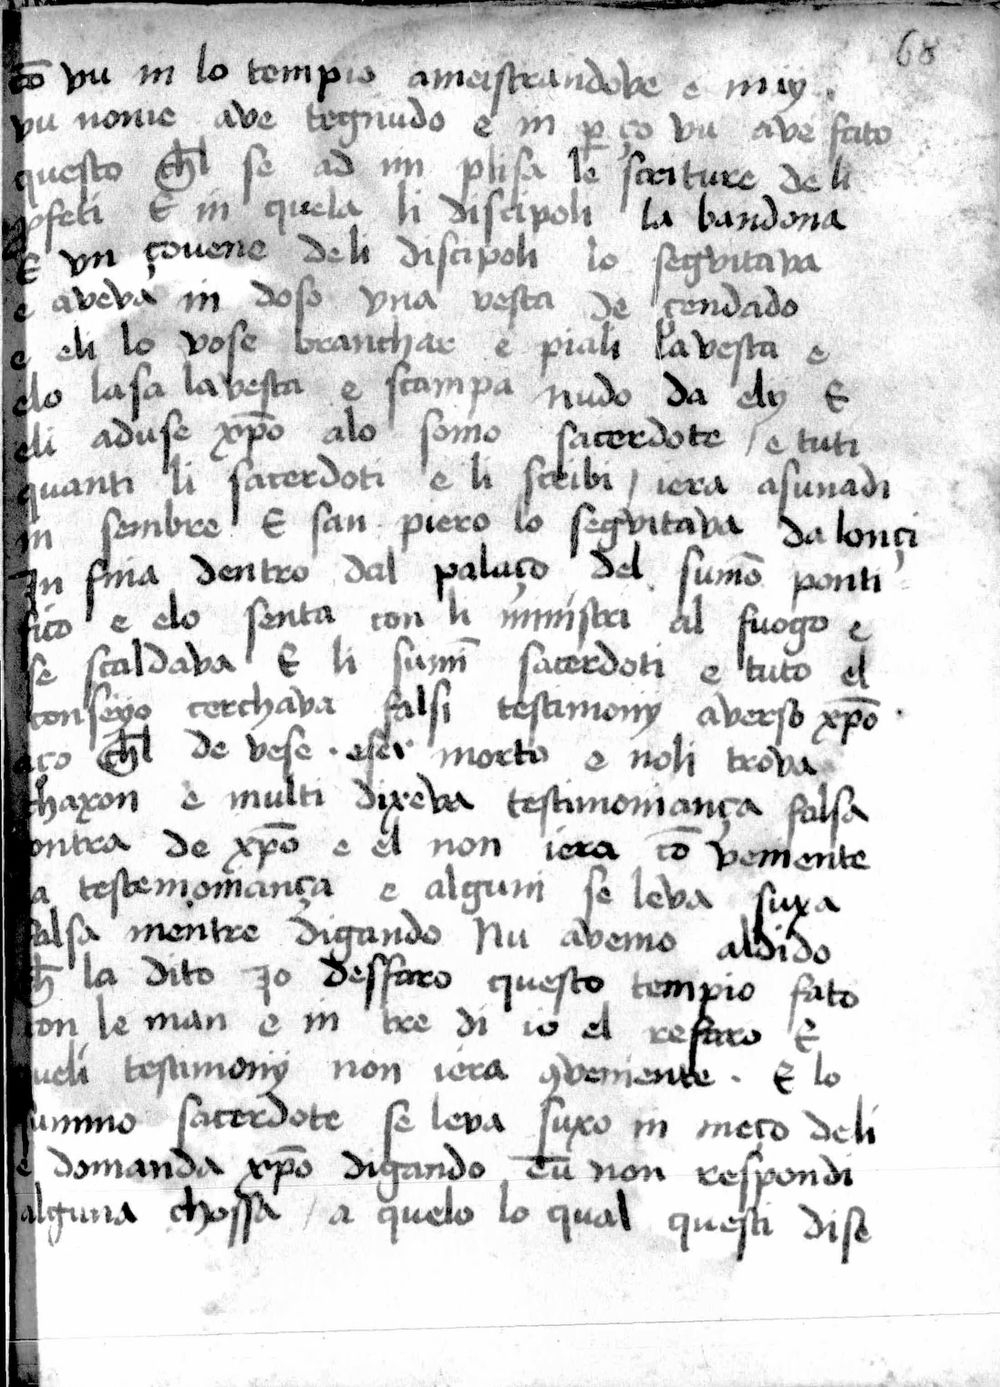 68
cō vu in lo tempio ameistrandove e miy
vu nonie ave tegnudo e in ꝑ ço vu ave fato
questo ch̄l se ad im plisa le scriture de li
ꝓfeti E in quela li discipoli la bandona
E vn çovene deli discipoli lo segvitava
e aveva in doso vna vesta de çendado
e eli lo vose branchar e piali la vesta e
elo lasa la vesta e scampa nudo da ely E
eli aduse xp̄o alo somo sacerdote / e tuti
quanti li sacerdoti e li scribi / iera asunadi
in sembre E san piero lo segvitava da lonçi
In fina dentro dal palaço del sumō ponti
fico e elo senta con li ministri al fuogo e
se scaldava E li sumī sacerdoti e tuto el
conseyo cerchava falsi testimony averso xp̄o .
aço ch̄l de vese . eser morto e noli trova
chaxon e multi dixeva testimoniança falsa
ontra de xp̄o e el non iera cō veniente
a testemoniança e alguni se leva suxa
falsa mentre digando Nu avemo aldido
ch̄ la dito Io desfaro questo tempio fato
con le man e in tre di io el refaro E
queli testimony non iera ꝯveniente . E lo
summo sacerdote se leva suxo in meço deli
e domanda xp̄o digando tū non respondi
alguna chossa / a quelo lo qual questi dise